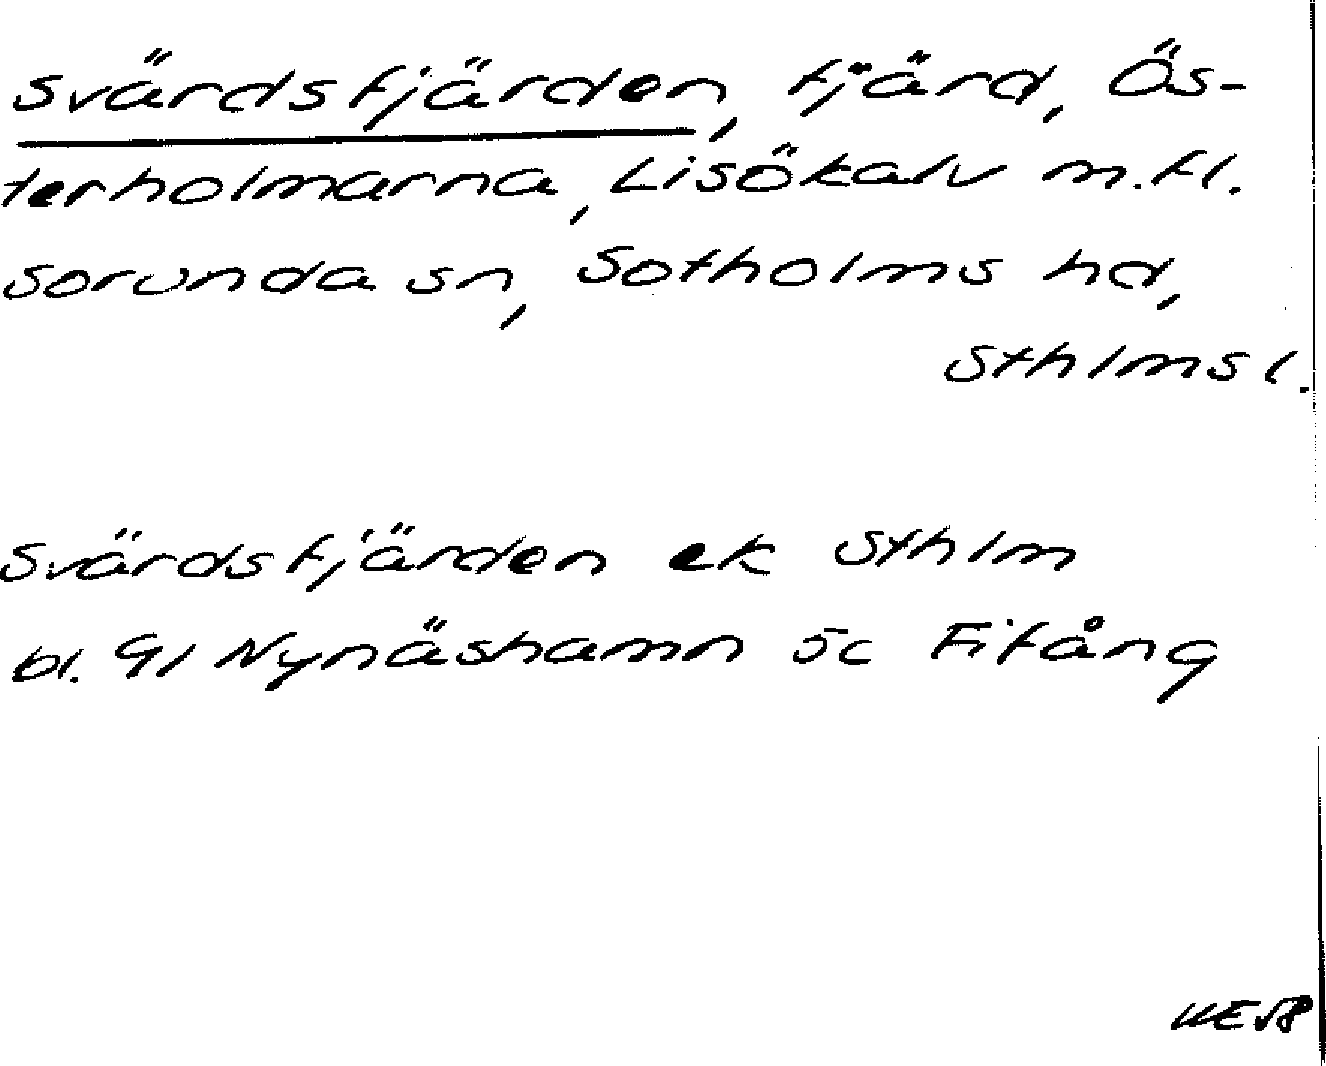 Svärdsfjärden, fjärd, Ös-
terholmarna, Lisökalv m.fl.
Sorunda sn, Sotholms hd,
Sthlms l.
Svärdsfjärden ek Sthlm
bl. 91 Nynäshamn 5c Fifång